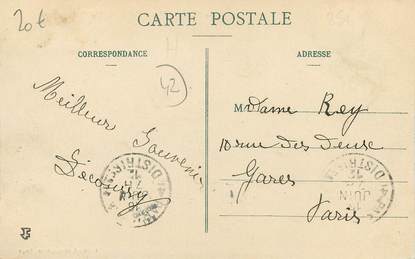 20€
CARTE POSTALE
CORRESPONDANCE
ADRESSE
42
Meilleur
Souvenir
Madame Rey
10 rue des deux
Gares
Paris
DISTRIBUTION
JUIN
DISTRIB
JUIN